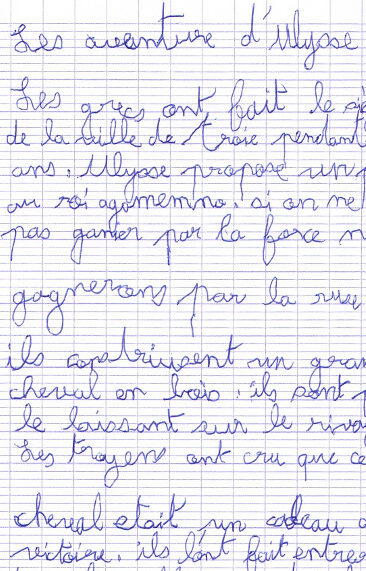 Les aventure d'Ulysse
Les grecs ont fait le siè
de la ville de troie pendant
ans. Ulysse propose un p
au roi agamemno. si on ne
pas ganier par la force n
gagnerons par la ruse
ils construisent un gran
cheval en bois. ils sont p
le laissant sur le riva
Les troyens ont cru que ce
cheval etait un cadeau d
victoire. ils l'ont fait entrer